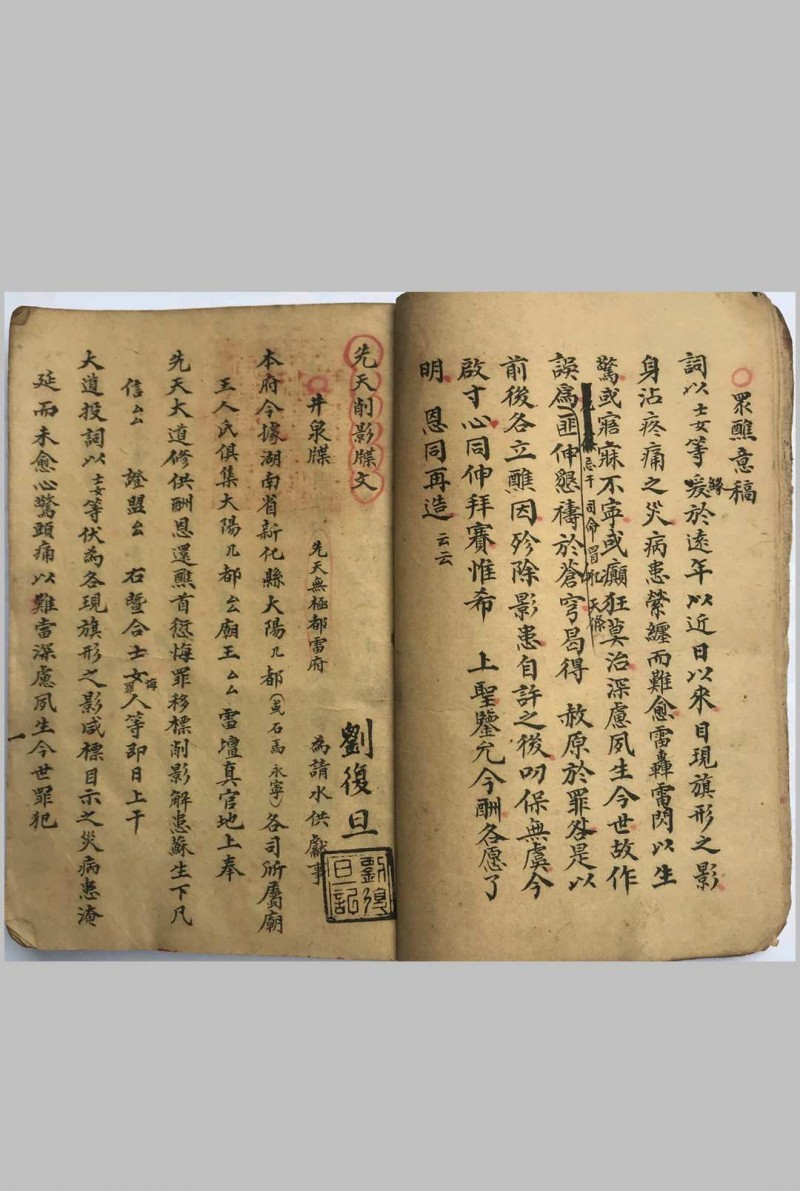 眾醮意稿
詞以士女等緣爰於遠年以近日以來目現旗形之影
身沾疼痛之災病患縈纏而難愈雷轟雷閃以生
驚或寤寐不寧或癲狂莫治深慮夙生今世故作
忌干 司命冒犯 天條
誤為匪伸懇禱於蒼穹曷得 赦原於罪咎是以
前後各立醮因殄除影患自許之後叨保無虞今
啟寸心同伸拜賽惟希 上聖鑒允今酬各愿了
明 恩同再造云云
先天削影牒文
劉復旦
劉復旦記
井泉牒 先天無極都雷府 為請水供獻事
本府今據湖南省新化縣大陽几都(或石馬永寧)各司所屬廟
王人氏俱集大陽几都厶廟王厶厶 雷壇真官地上奉
先天大道修供酬恩還熊首愆悔罪移標削影解患蘇生下凡
信厶厶 證盟厶 右暨合士女人等即日上干
大道投詞以士女等伏為各現旗形之影咸標目示之災病患淹
延而未愈心驚頭痛以難當深慮夙生今世罪犯